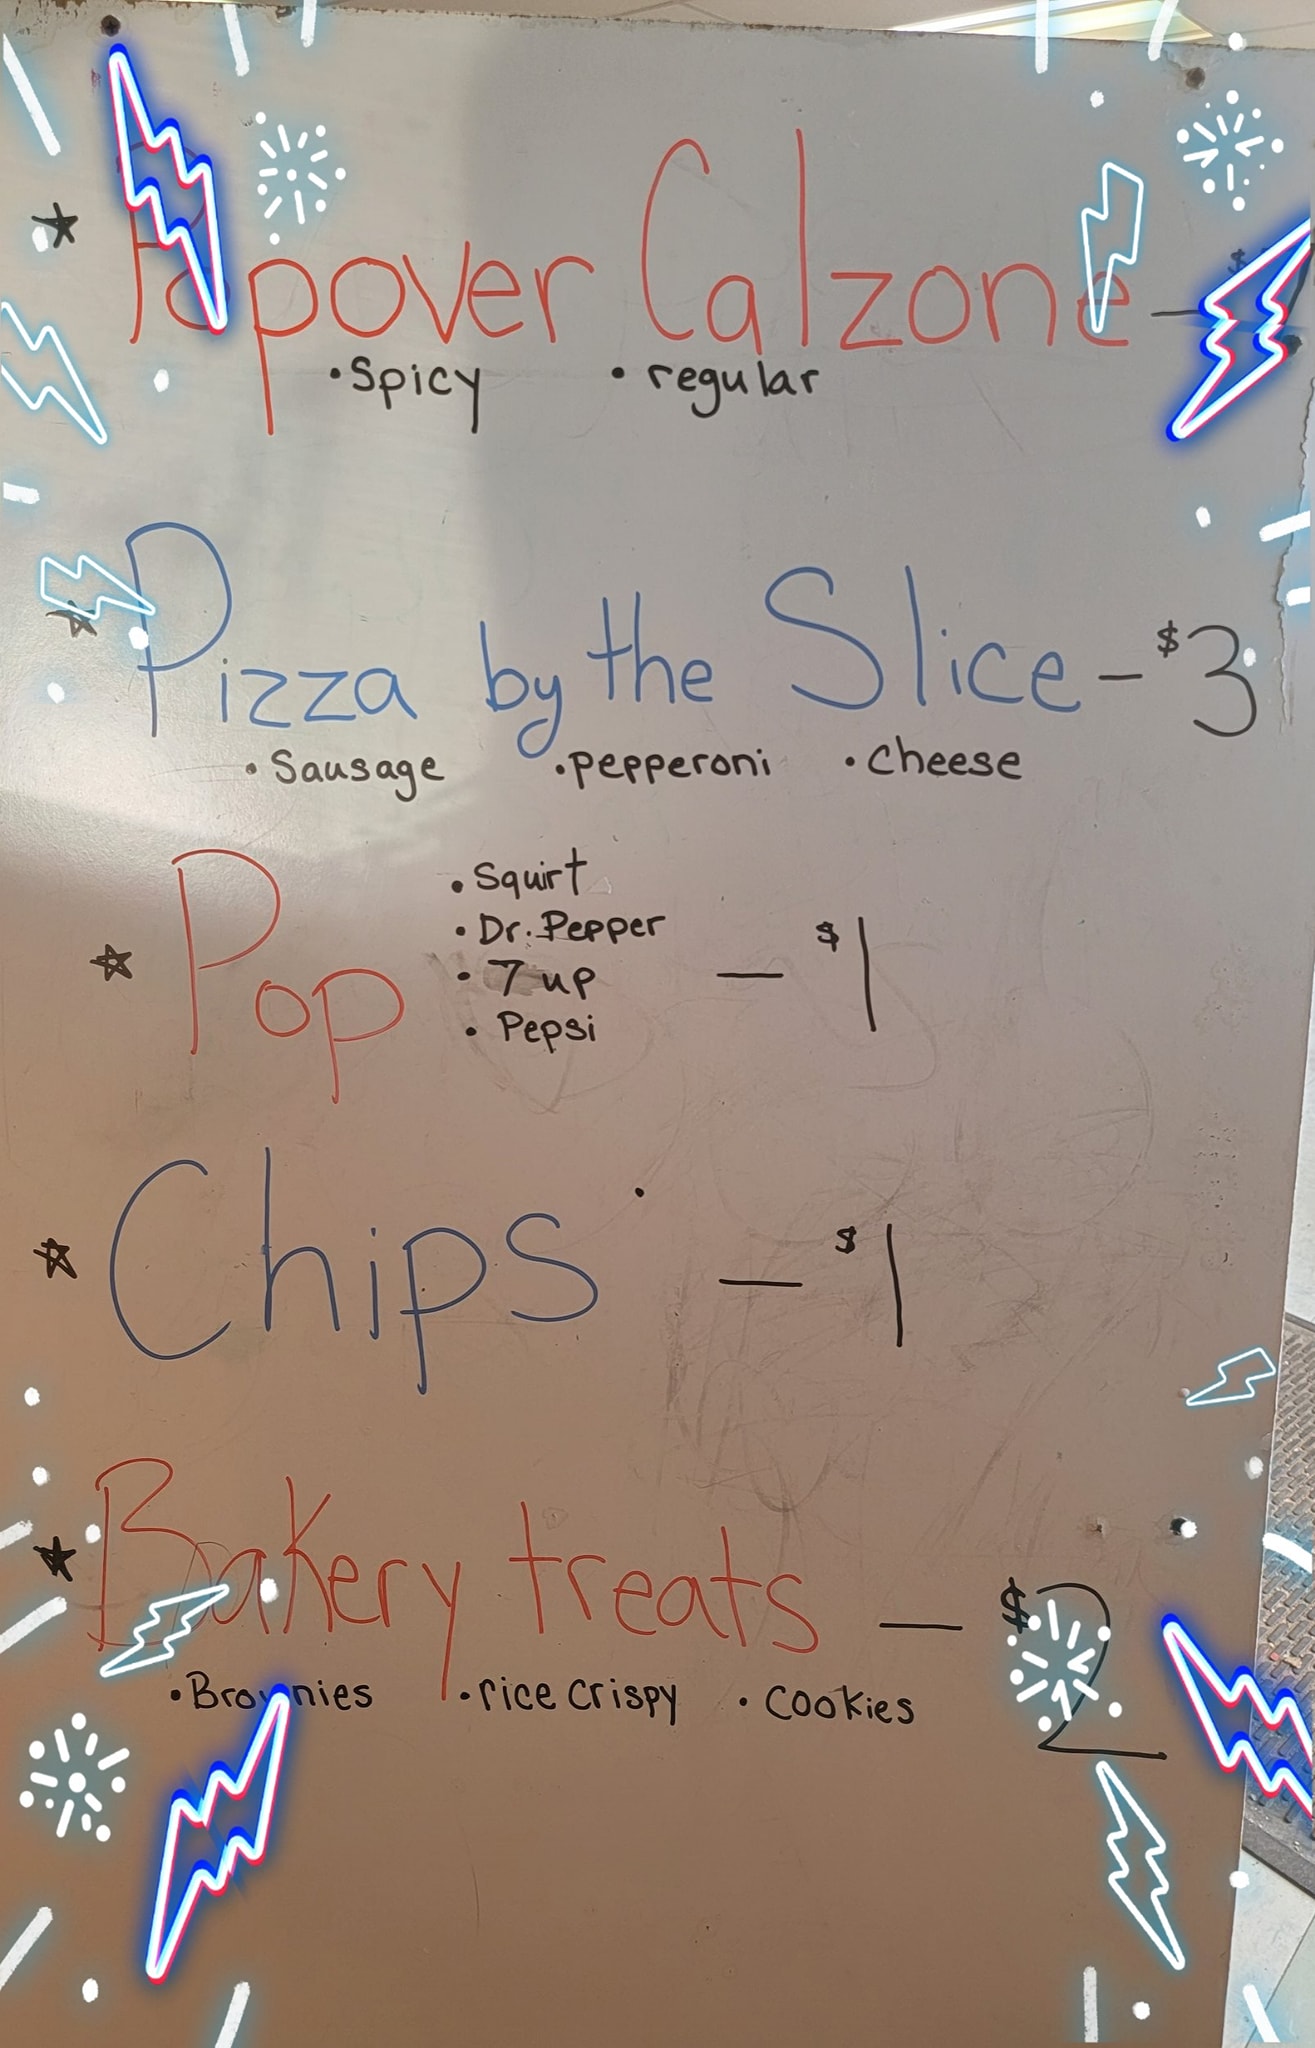 Popover Calzone - $
• Spicy • regular
Pizza by the Slice - $3
• Sausage • pepperoni • cheese
Pop
• Squirt
• Dr. Pepper
• 7 up
• Pepsi
- $1
Chips - $1
Bakery treats - $2
• Brownies • rice crispy • cookies